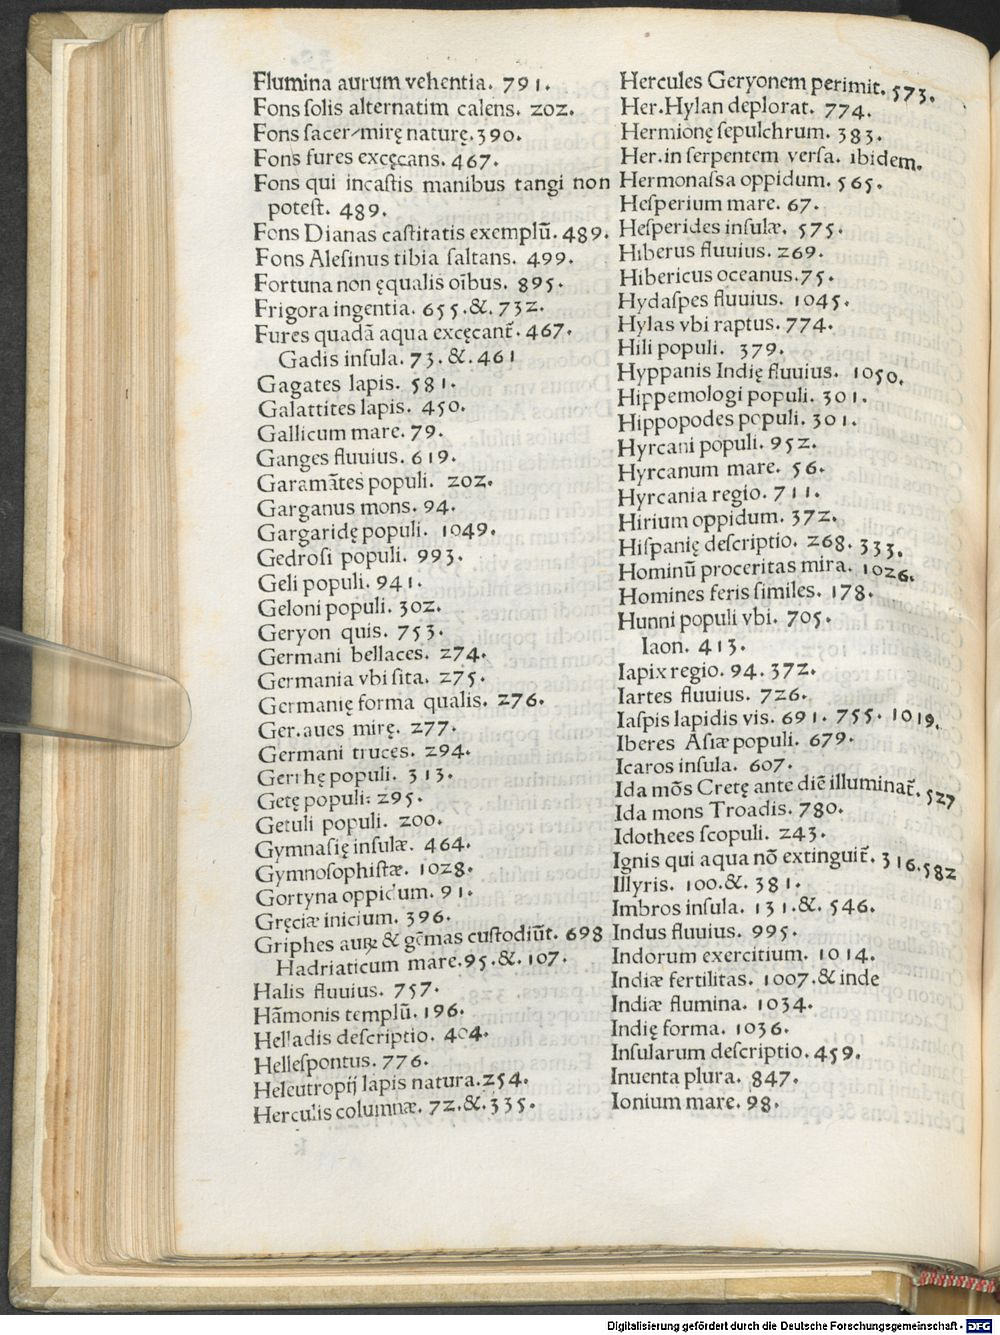 Flumina aurum vehentia. 791.
Fons ſolis alternatim calens. 202.
Fons ſacer mirę naturę. 390.
Fons fures excęcans. 467.
Fons qui incaſtis manibus tangi non
poteſt. 489.
Fons Dianas caſtitatis exemplũ. 489.
Fons Aleſinus tibia ſaltans. 499.
Fortuna non ęqualis oĩbus. 895.
Frigora ingentia. 655.&. 732.
Fures quadã aqua excęcant̃. 467.
Gadis inſula. 73. &. 461
Gagates lapis. 581.
Galattites lapis. 450.
Gallicum mare. 79.
Ganges fluuius. 619.
Garamãtes populi. 202.
Garganus mons. 94.
Gargaridę populi. 1049.
Gedroſi populi. 993.
Geli populi. 941.
Geloni populi. 302.
Geryon quis. 753.
Germani bellaces. 274.
Germania vbi ſita. 275.
Germanię forma qualis. 276.
Ger. aues mirę. 277.
Germani truces. 294.
Gerrhę populi. 313.
Getę populi: 295.
Getuli populi. 200.
Gymnaſię inſulæ. 464.
Gymnoſophiſtæ. 1028.
Gortyna oppidum. 91.
Gręciæ inicium. 396.
Griphes auꝝ & gẽmas cuſtodiũt. 698
Hadriaticum mare. 95. &. 107.
Halis fluuius. 757.
Hãmonis templũ. 196.
Helladis deſcriptio. 404.
Helleſpontus. 776.
Heleutropij lapis natura. 254.
Herculis columnæ. 72. &. 335.
Hercules Geryonem perimit. 573.
Her. Hylan deplorat. 774.
Hermionę ſepulchrum. 383.
Her. in ſerpentem verſa. ibidem.
Hermonaſsa oppidum. 565.
Heſperium mare. 67.
Heſperides inſulæ. 575.
Hiberus fluuius. 269.
Hibericus oceanus. 75.
Hydaſpes fluuius. 1045.
Hylas vbi raptus. 774.
Hili populi. 379.
Hyppanis Indię fluuius. 1050.
Hippemologi populi. 301.
Hippopodes populi. 301.
Hyrcani populi. 952.
Hyrcanum mare. 56.
Hyrcania regio. 711.
Hirium oppidum. 372.
Hiſpanię deſcriptio. 268. 333.
Hominũ proceritas mira. 1026.
Homines feris ſimiles. 178.
Hunni populi vbi. 705.
Iaon. 413.
Iapix regio. 94. 372.
Iartes fluuius. 726.
Iaſpis lapidis vis. 691. 755. 1019.
Iberes Aſiæ populi. 679.
Icaros inſula. 607.
Ida mõs Cretę ante diẽ illuminat̃. 527
Ida mons Troadis. 780.
Idothees ſcopuli. 243.
Ignis qui aqua nõ extinguit̃. 316. 582
Illyris. 100. &. 381.
Imbros inſula. 131. &. 546.
Indus fluuius. 995.
Indorum exercitium. 1014.
Indiæ fertilitas. 1007. & inde
Indiæ flumina. 1034.
Indię forma. 1036.
Inſularum deſcriptio. 459.
Inuenta plura. 847.
Ionium mare. 98.
Digitalisierung gefördert durch die Deutsche Forschungsgemeinschaft - DFG